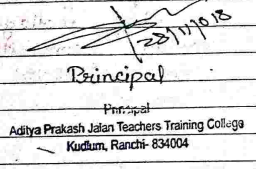 28/11/2018
Principal
Principal
Aditya Prakash Jalan Teachers Training College
Kudlum, Ranchi- 834004